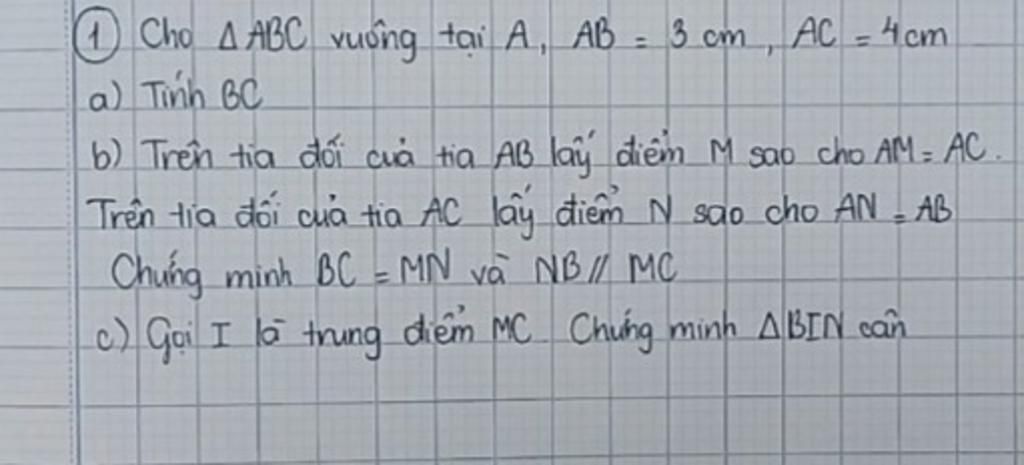 ① Cho ∆ ABC vuông tại A, AB = 3 cm, AC = 4cm
a) Tính BC
b) Trên tia đối của tia AB lấy điểm M sao cho AM = AC.
Trên tia đối của tia AC lấy điểm N sao cho AN = AB
Chứng minh BC = MN và NB // MC
c) Gọi I là trung điểm MC Chứng minh ∆BIN cân